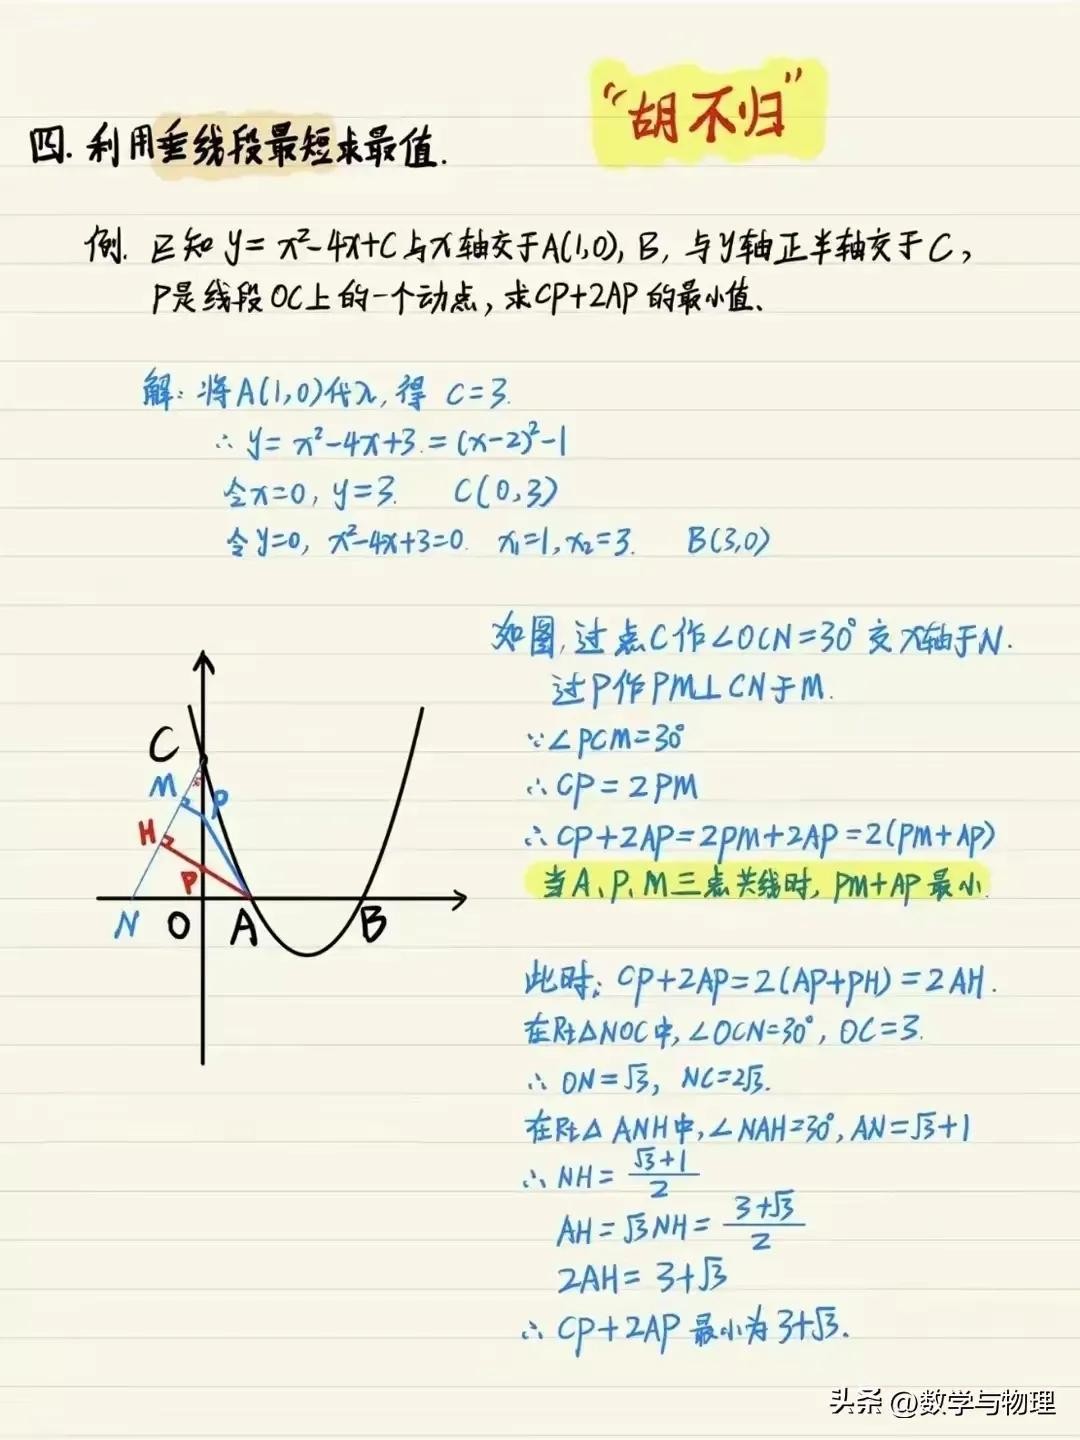 “胡不归”
四.利用垂线段最短求最值.
例.已知y=x²-4x+C与x轴交于A(1,0),B,与y轴正半轴交于C,
P是线段OC上的一个动点,求CP+2AP的最小值.
解:将A(1,0)代入,得 C=3.
∴y=x²-4x+3.=(x-2)²-1
令x=0,y=3. C(0,3)
令y=0, x²-4x+3=0. x₁=1,x₂=3. B(3,0)
如图,过点C作∠OCN=30°交x轴于N.
过P作PM⊥CN于M.
∵∠PCM=30°
∴CP=2PM
∴CP+2AP=2PM+2AP=2(PM+AP)
当A、P、M三点共线时,PM+AP最小.
C
M
P
H
P
N
O
A
B
此时:CP+2AP=2(AP+PH)=2AH.
在Rt△NOC中,∠OCN=30°,OC=3.
∴ON=√3, NC=2√3.
在Rt△ANH中,∠NAH=30°,AN=√3+1
∴NH=(√3+1)/2
AH=√3NH=(3+√3)/2
2AH=3+√3
∴CP+2AP最小为3+√3.
头条@数学与物理